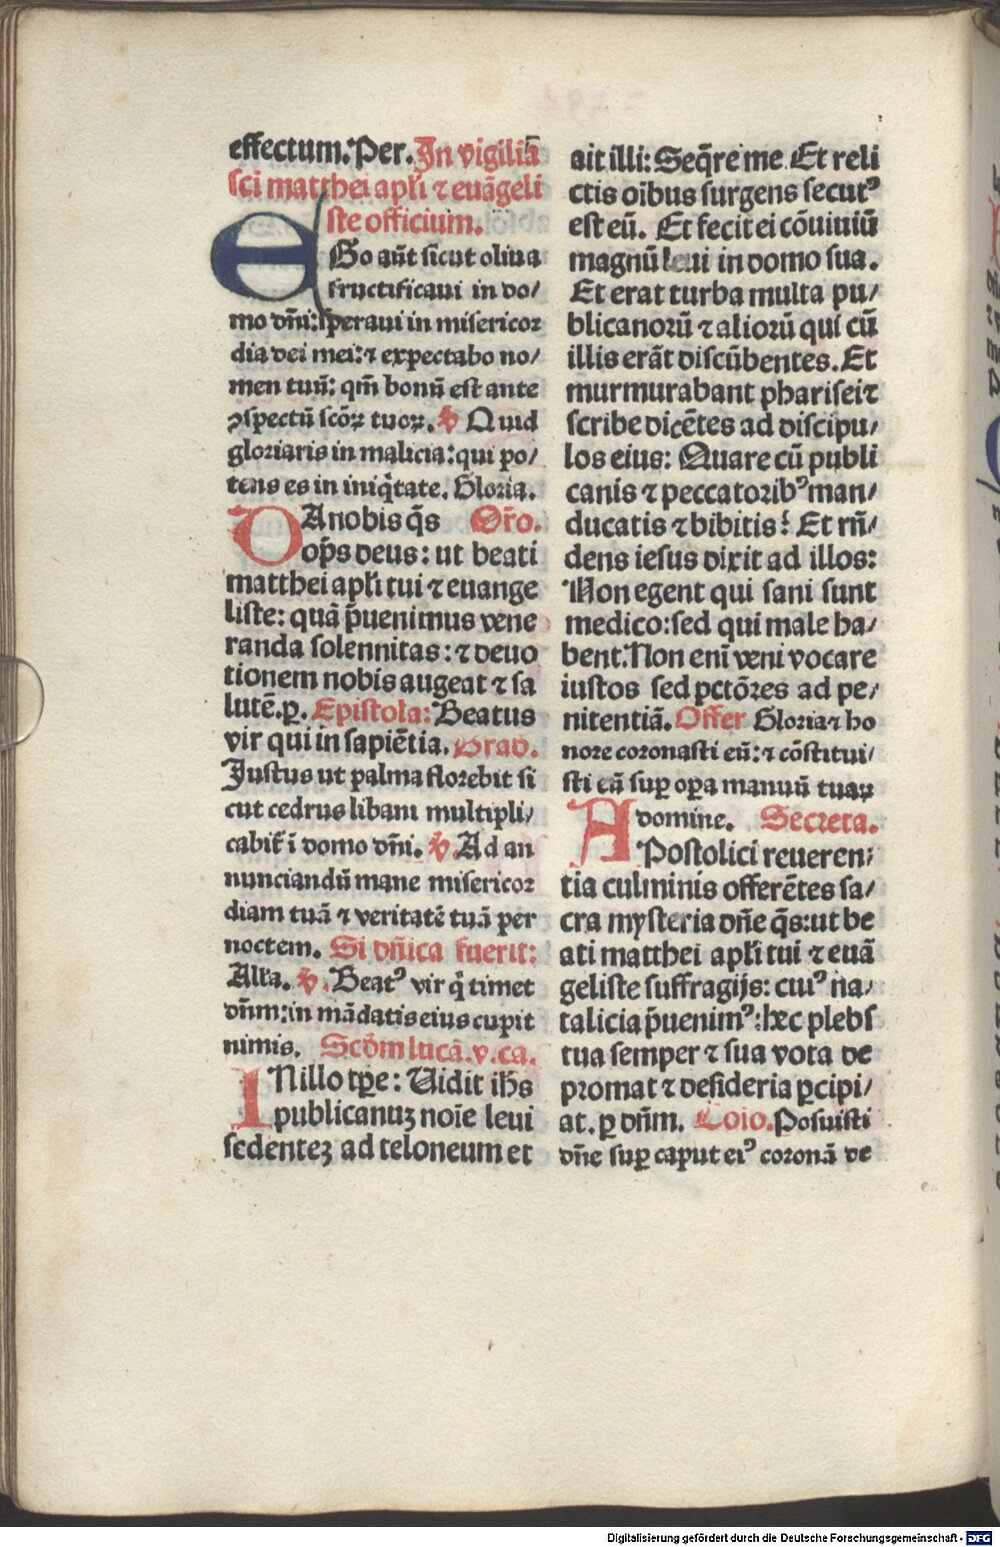 effectum. Per. In vigilia
sci matthei apl̄i ⁊ euāgeli
ste officium.
EGo aūt sicut oliua
fructificaui in do/
mo dn̄i: speraui in misericoꝛ
dia dei mei: ⁊ expectabo no/
men tuū: qm̄ bonū est ante
ꝯspectū scōꝝ tuoꝝ. ℣ Quid
gloꝛiaris in malicia: qui po/
tens es in iniq̄tate. Gloꝛia.
DA nobis q̄s Or̄o.
op̄s deus: ut beati
matthei apl̄i tui ⁊ euange
liste: quā p̄uenimus vene
randa solennitas: ⁊ deuo
tionem nobis augeat ⁊ sa
lutē. ꝑ. Epistola: Beatus
vir qui in sapiētia. Grad.
Justus ut palma floꝛebit si
cut cedrus libani multipli/
cabit̄ ī domo dn̄i. ℣. Ad an
nunciandū mane misericoꝛ
diam tuā ⁊ veritatē tuā per
noctem. Si dn̄ica fuerit:
Alla. ℣. Beatꝰ vir q̄ timet
dn̄m: in mādatis eius cupit
nimis. Scōm lucā. v. ca.
IN illo tp̄e: Uidit ih̄s
publicanuꝫ noīe leui
sedenteꝫ ad teloneum et
ait illi: Seq̄re me Et reli
ctis oībus surgens secutꝰ
est eū. Et fecit ei cōuiuiū
magnū leui in domo sua.
Et erat turba multa pu/
blicanoꝛū ⁊ alioꝛū qui cū
illis erāt discūbentes. Et
murmurabant pharisei ⁊
scribe dicētes ad discipu/
los eius: Quare cū publi
canis ⁊ peccatoꝛibꝰ man/
ducatis ⁊ bibitis? Et rn̄/
dens iesus dixit ad illos:
Non egent qui sani sunt
medico: sed qui male ha/
bent. Non enī veni vocare
iustos sed pctōꝛes ad pe/
nitentiā. Offer Gloꝛia ⁊ ho
noꝛe coꝛonasti eū: ⁊ cōstitui/
sti eū suꝑ oꝑa manuū tuaꝝ
domine. Secreta.
APostolici reueren/
tia culminis offerētes sa/
cra mysteria dn̄e q̄s: ut be
ati matthei apl̄i tui ⁊ euā
geliste suffragijs: cuiꝰ na/
talicia p̄uenimꝰ: hec plebs
tua semper ⁊ sua vota de
pꝛomat ⁊ desideria ꝑcipi/
at. ꝑ dn̄m. Coīo. Posuisti
dn̄e suꝑ caput eiꝰ coꝛonā de
Digitalisierung gefördert durch die Deutsche Forschungsgemeinschaft - DFG